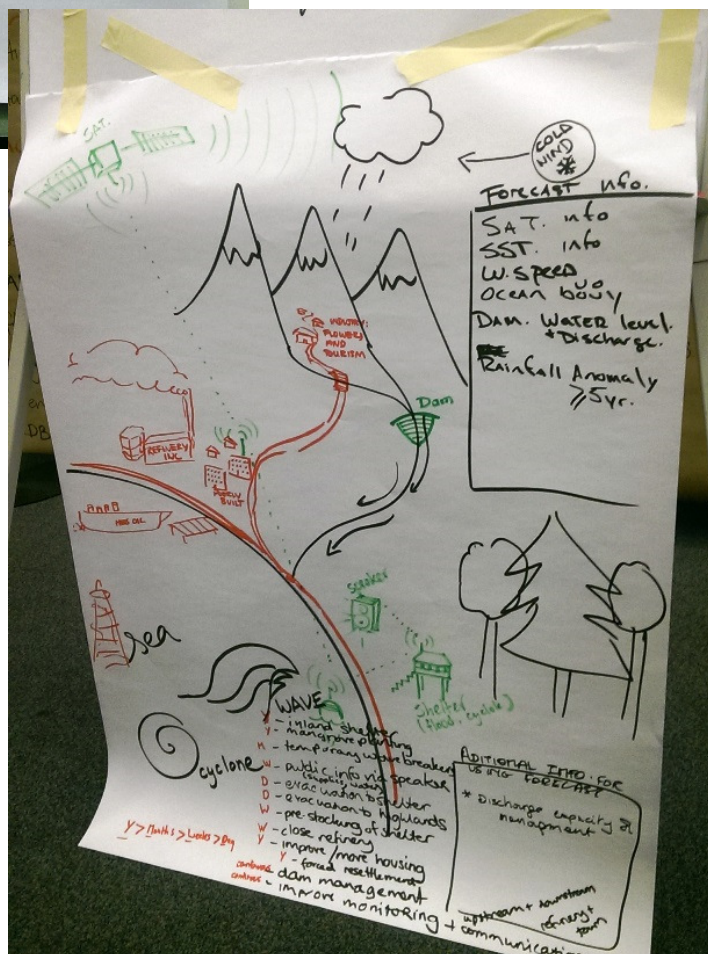 SAT.
COLD
WIND
FORECAST info.
SAT. info
SST. info
W. SPEED
OCEAN boUy
DAM. WATER level.
+ Discharge.
Rainfall Anomaly
≥ 5yr.
INDUSTRY:
FLOWERS
AND
TOURISM
Dam
REFINERY
INC
BUILT
OIL
sea
Speaker
Shelter
(flood, cyclone)
WAVE
cyclone
Y - inland shelter
Y - mangrove planting
M - temporary wave breakers
W - public info via speaker
(supplies, water)
D - evacuation to shelter
D - evacuation to highlands
W - pre-stocking of shelter
W - close refinery
Y - improve/more housing
Y - forced resettlement
continuous - dam management
continuous - improve monitoring + communication
Y > Months > Weeks > Day
ADITIONAL INFO. FOR
USING FORECAST
* Discharge capacity &
management
upstream + downstream
refinery +
town